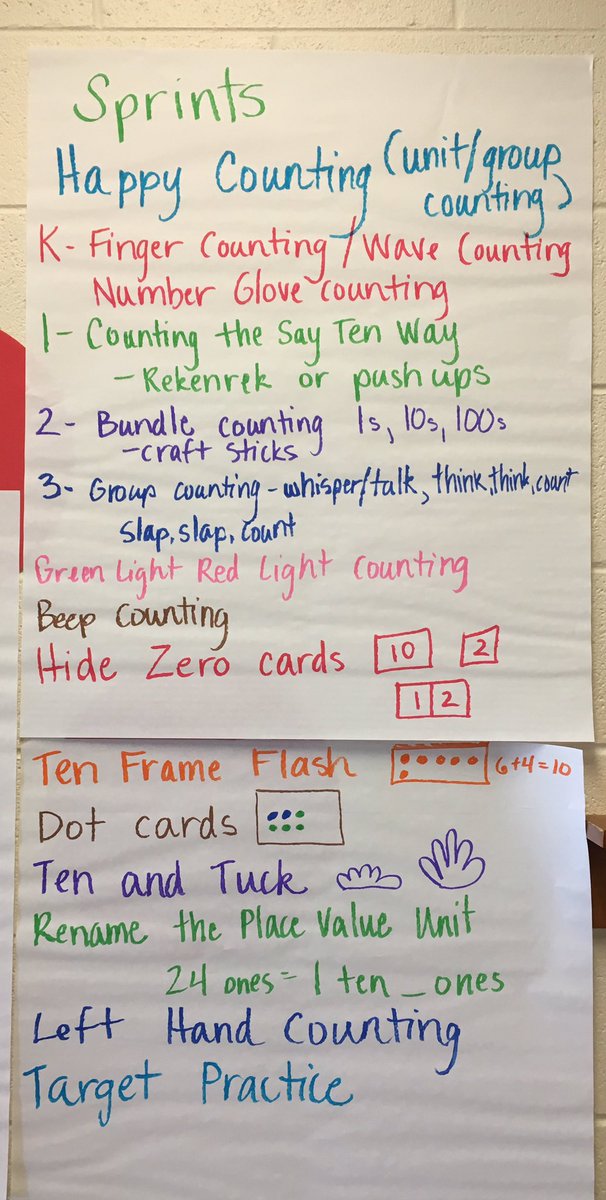 Sprints
Happy Counting (unit/group
counting)
K- Finger Counting/Wave Counting
Number Glove counting
1- Counting the Say Ten Way
- Rekenrek or push ups
2- Bundle counting 1s, 10s, 100s
- craft sticks
3- Group counting - whisper/talk, think, think, count
slap, slap, count
Green Light Red Light Counting
Beep Counting
Hide Zero cards 10 2
1 2
Ten Frame Flash 6+4=10
Dot cards
Ten and Tuck
Rename the Place Value Unit
24 ones = 1 ten _ ones
Left Hand Counting
Target Practice